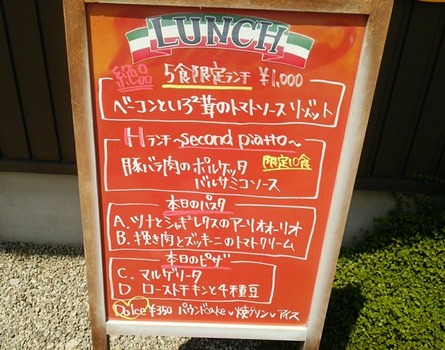 LUNCH
絶品 5食限定ランチ ¥1,000
ベーコンといろ2茸のトマトソース リゾット
Hランチ~second piatto~
豚バラ肉のポルケッタ 限定10食
バルサミコソース
本日のパスタ
A. ツナとシャキレタスのアーリオオーリオ
B. 挽き肉とズッキーニのトマトクリーム
本日のピザ
C. マルゲリータ
D ローストチキンと4種豆
Dolce ¥350 パウンドcake v 焼プリン v アイス